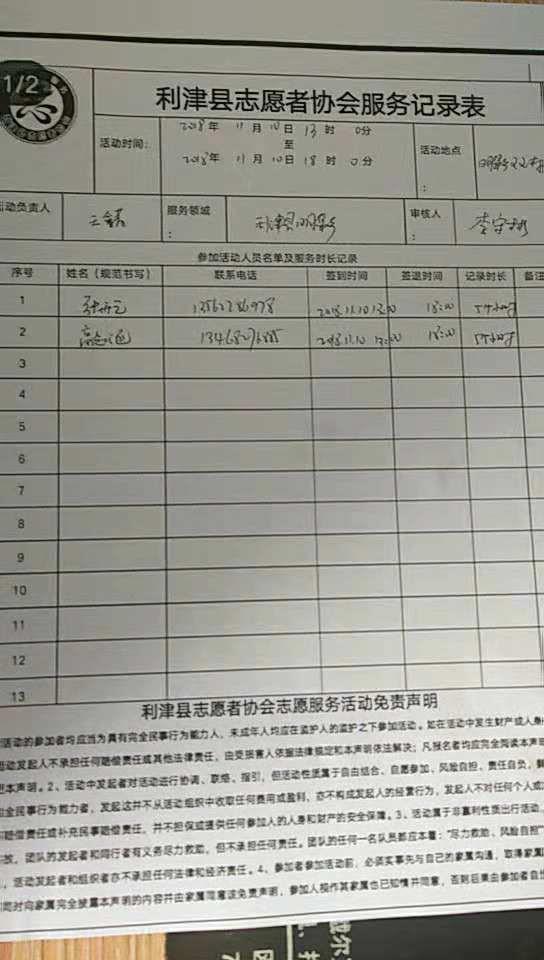 1/2
利津县志愿者协会服务记录表
活动时间：
2018年 11月 10日 13时 0分
至
2018年 11月 10日 18时 0分
活动地点：
活动负责人
服务领域：
审核人：
李守彬
参加活动人员名单及服务时长记录
序号 姓名（规范书写） 联系电话 签到时间 签退时间 记录时长 备注
1 2018.11.10 13:00 18:00 5个小时
2 2018.11.10 13:00 18:00 5个小时
3
4
5
6
7
8
9
10
11
12
13
利津县志愿者协会志愿服务活动免责声明
活动的参加者均应当为具有完全民事行为能力人，未成年人均应在监护人的监护之下参加活动。如在活动中发生财产或人身
活动发起人不承担任何赔偿责任或其他法律责任，由受损害人依据法律规定和本声明依法解决；凡报名者均应完全阅读本声明
本声明。2、活动中发起者对活动进行协调、联络、指引，但活动性质属于自由结合、自愿参加、风险自担、责任自负，
完全民事行为能力者，发起这并不从活动组织中收取任何费用或盈利，亦不构成发起人的经营行为，发起人不对任何个人或
赔偿责任或补充民事赔偿责任，并不担保或提供任何参加人的人身和财产的安全保障。3、活动属于非赢利性质出行活动，
故，团队的发起者和同行者有义务尽力救助，但不承担任何责任。团队的任何一名队员都应本着：“尽力救助，风险自担”
，活动发起者和组织者亦不承担任何法律和经济责任。4、参加者参加活动前，必须实事先与自己的家属沟通，取得家属
同时对向家属完全披露本声明的内容并由家属同意该免责声明，参加人视作其家属也已知情并同意，否则后果由参加者自